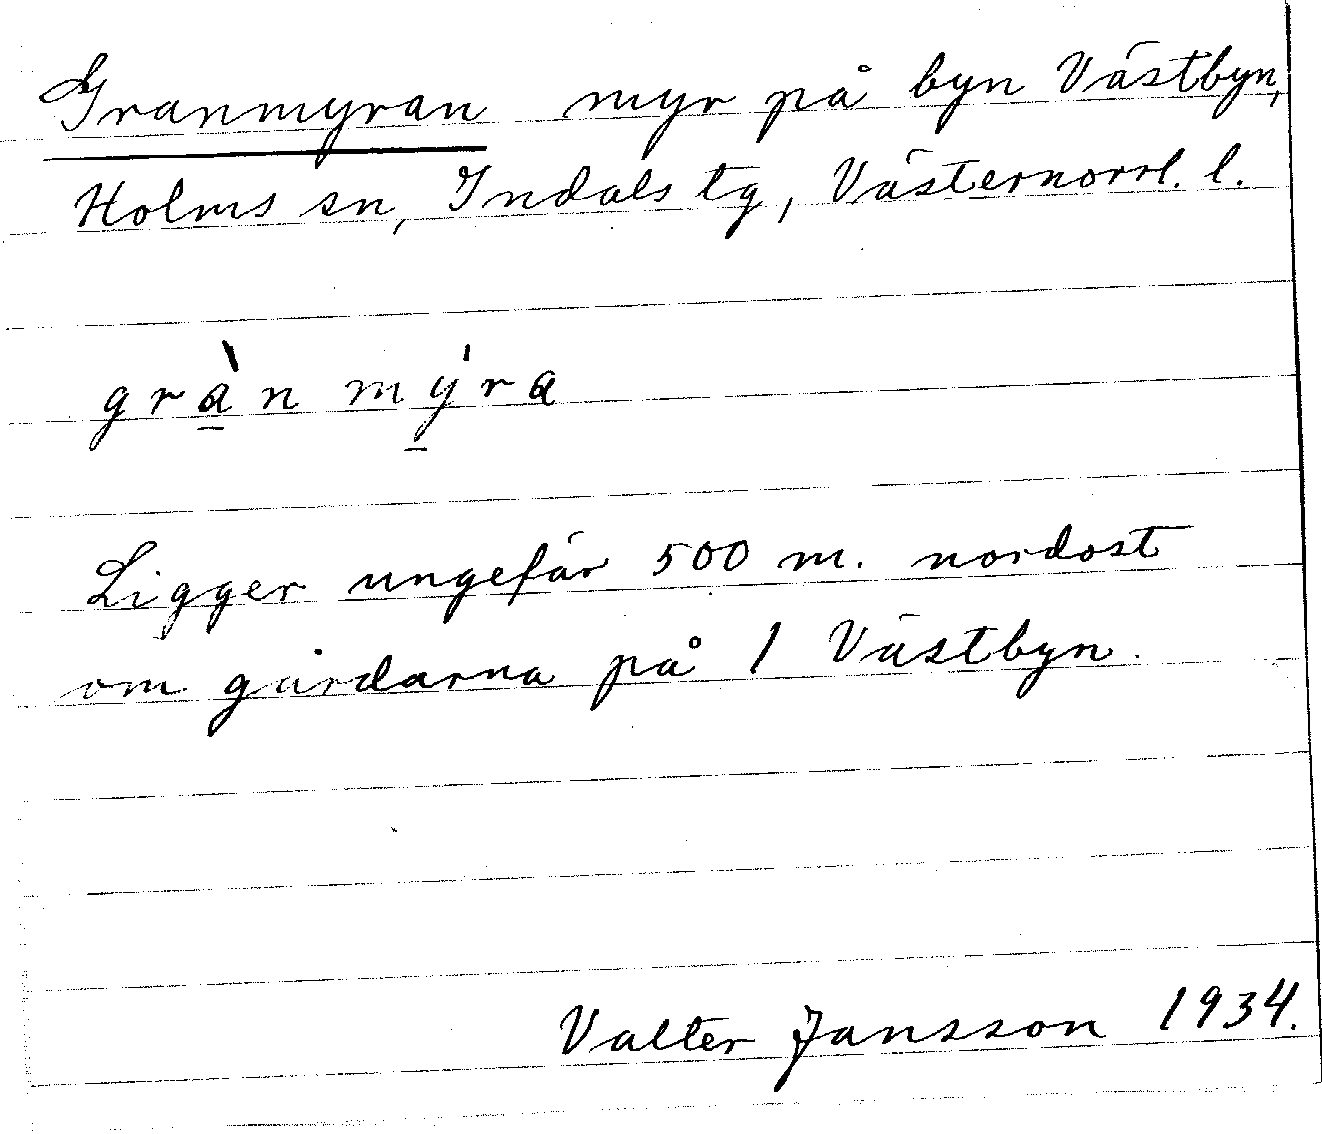 Granmyran myr på byn Västbyn,
Holms sn, Indals tg, Västernorrl. l.
grà̱n mý̱ra
Ligger ungefär 500 m. nordost
om gårdarna på 1 Västbyn.
Valter Jansson 1934.